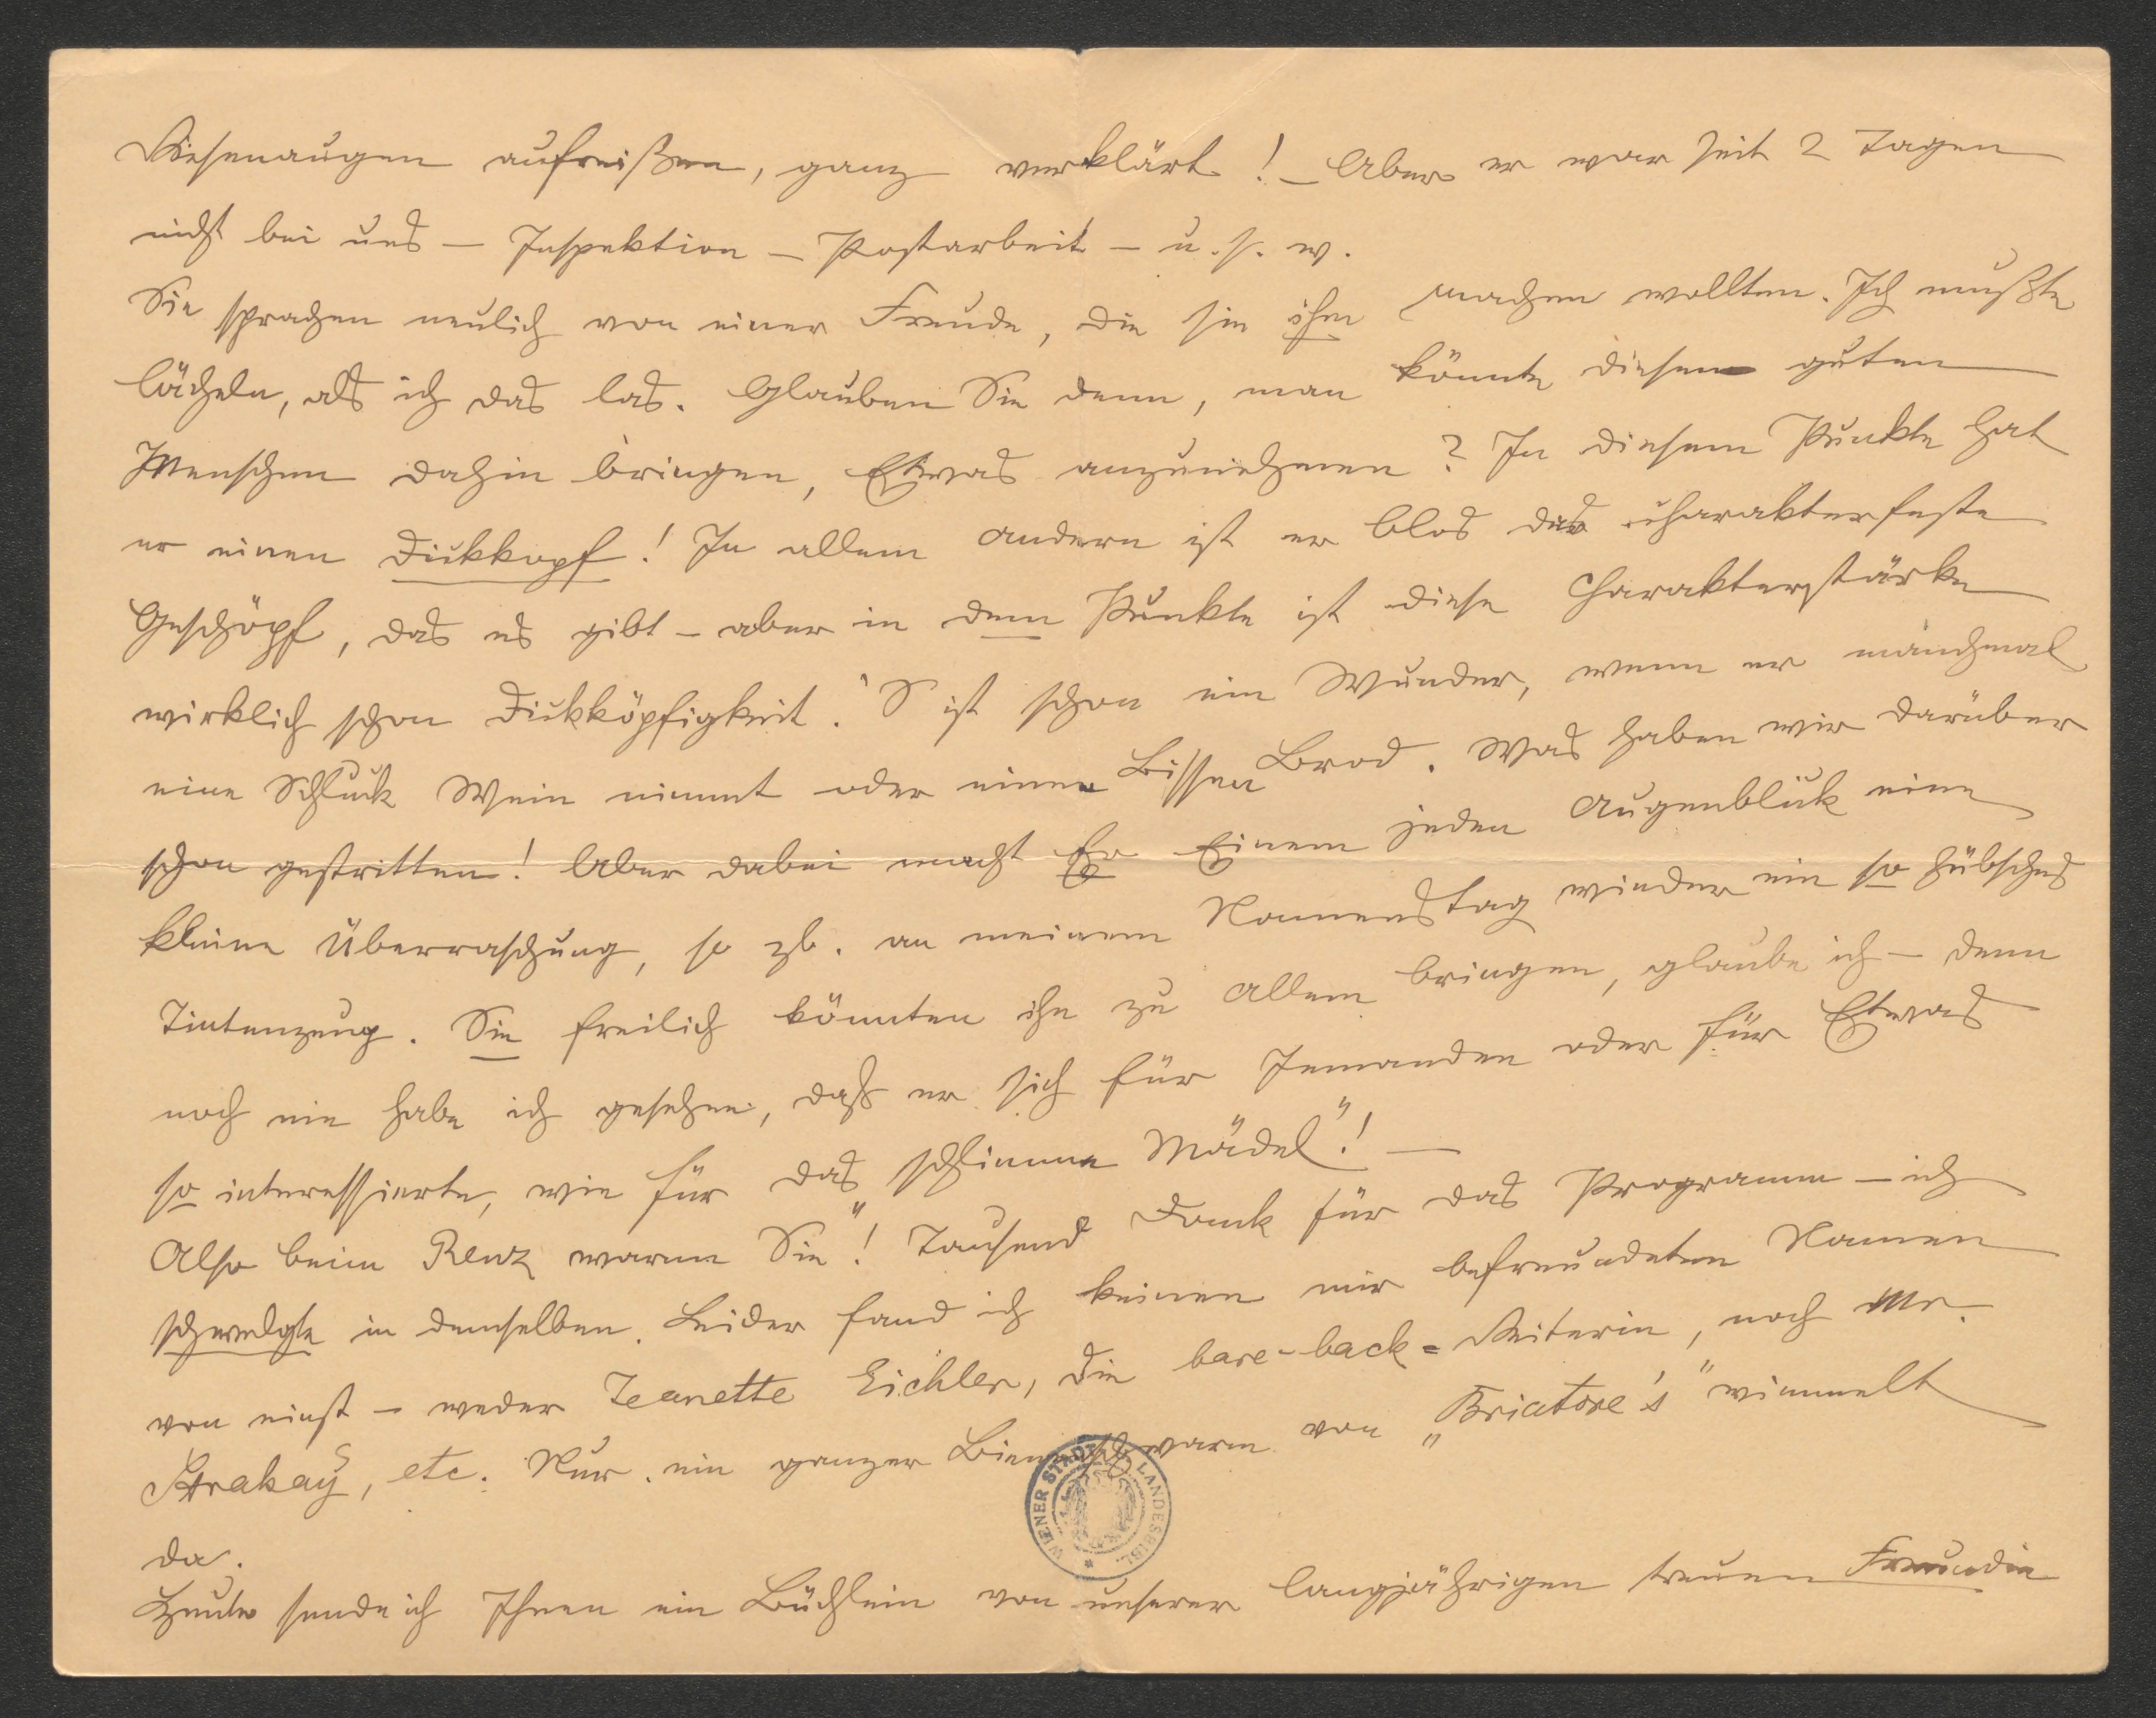 Riesenaugen aufreißen, ganz verklärt! – Aber er war seit 2 Tagen
nicht bei uns – Inspektion – Postarbeit – u. s. w.
Sie sprachen neulich von einer Freude, die sie ihm machen wollten. Ich mußte
lächeln, als ich das las. Glauben Sie denn, man könnte diesem guten
Menschen dahin bringen, Etwas anzunehmen? In diesem Punkte hat
er einen Dickkopf! In allem andern ist er blos das charakterfeste
Geschöpf, das es gibt – aber in dem Punkte ist diese Charakterstärke
wirklich schon Dickköpfigkeit. 'S ist schon ein Wunder, wenn er manchmal
eine Schluck Wein nimmt oder einen Bissen Brod. Was haben wir darüber
schon gestritten! Aber dabei macht Er Einem jeden Augenblick eine
kleine Überraschung, so zb. an meinem Namenstag wieder ein so hübsches
Tintenzeug. Sie freilich könnten ihn zu allem bringen, glaube ich – denn
noch nie habe ich gesehen, daß er sich für Jemanden oder für Etwas
so interessierte, wie für das „schlimme Mädel"! –
Also beim Renz waren Sie! Tausend Dank für das Programm – ich
schwelgte in demselben. Leider fand ich keinen mir befreundeten Namen
von einst – weder Jeanette Eichler, die bare-back=Reiterin, noch Mr.
Strakay, etc. Nur ein ganzer Bienenschwarm von „Briatore's" wimmelt
da.
Heute sende ich Ihnen ein Büchlein von unserer langjährigen treuen Freundin
WIENER STADT LANDESBIBL.